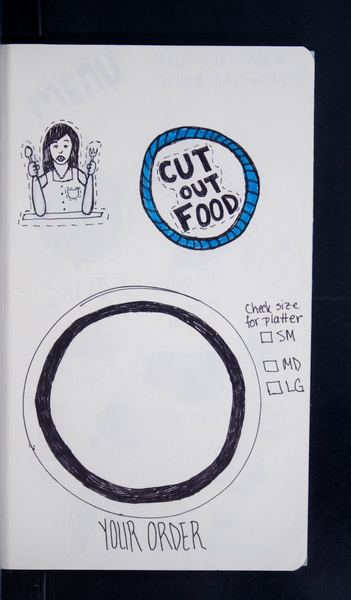 CUT
OUT
FOOD
Check size
for platter
SM
MD
LG
YOUR ORDER